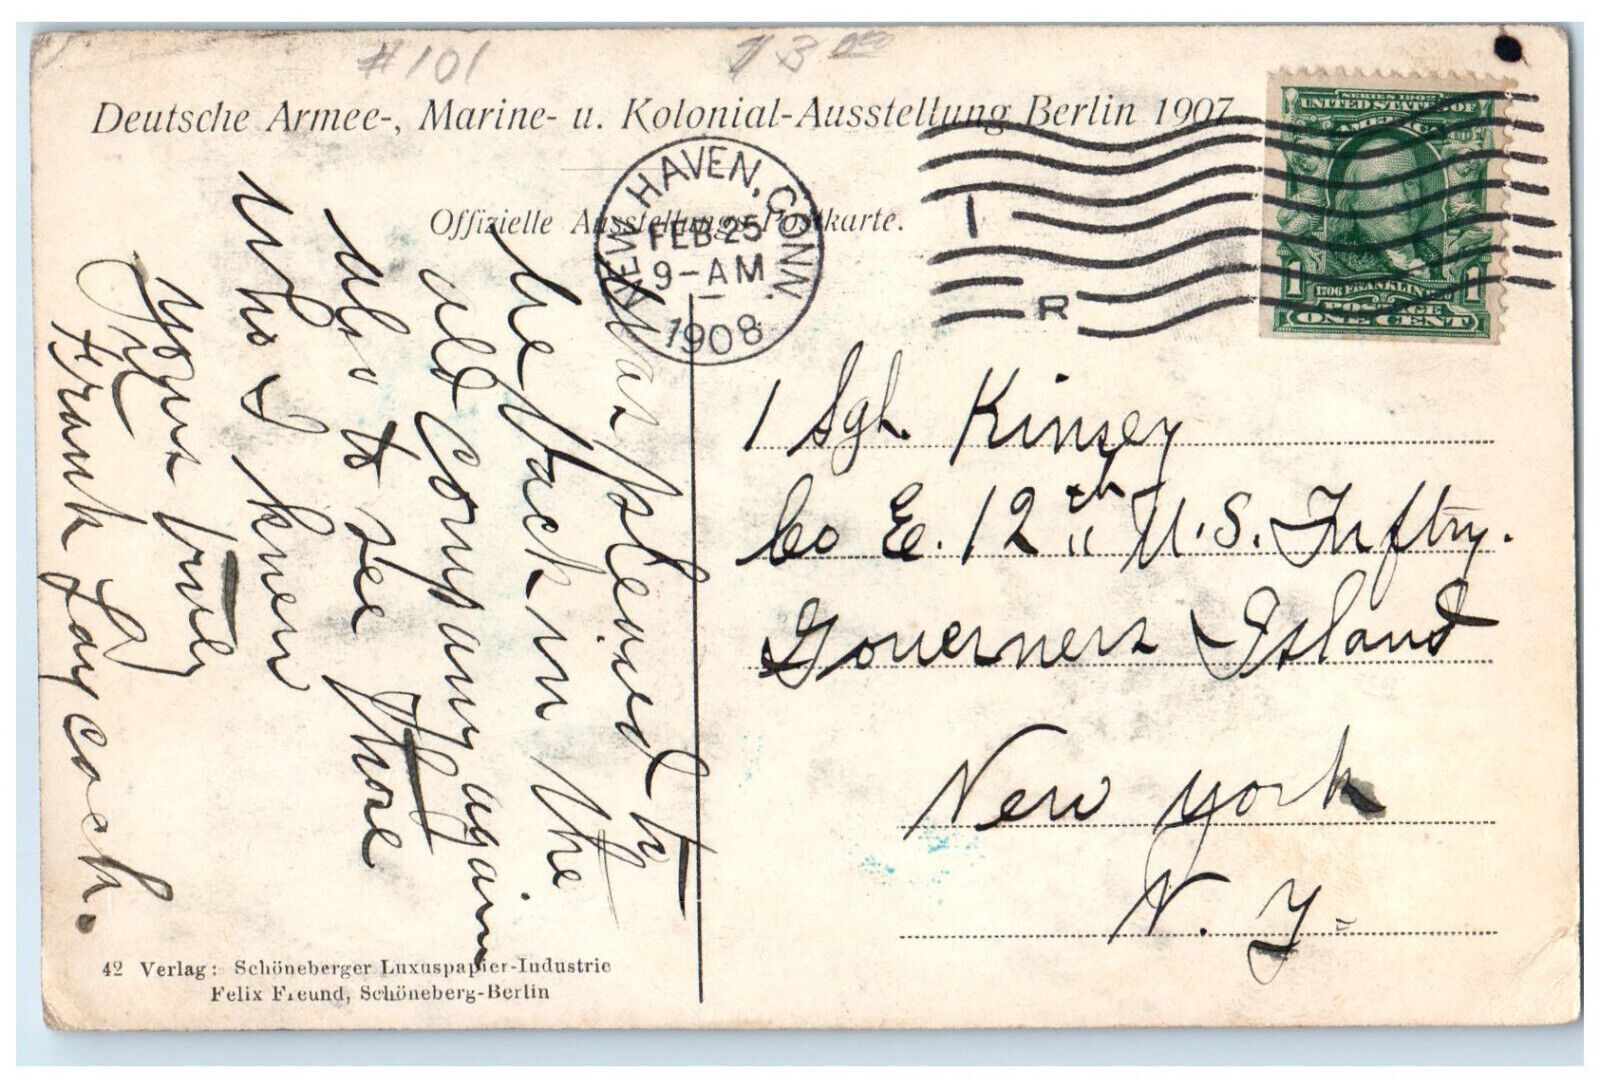 #101
Deutsche Armee-, Marine- u. Kolonial-Ausstellung Berlin 1907
Offizielle Ausstellungs-Postkarte.
NEW HAVEN, CONN.
FEB 25
9-AM
1908
1
R
SERIES 1902
UNITED STATES OF
AMERICA
1706 FRANKLIN 1790
POSTAGE
1 ONE CENT 1
1 Sgh. Kinsey
Co E. 12th U.S. Inftry.
Governers Island
New York
N. Y.
Was pleased to
be back in the
old company again
also to see those
who I knew
yours truly
Frank Laycock.
42 Verlag: Schöneberger Luxuspapier-Industrie
Felix Freund, Schöneberg-Berlin